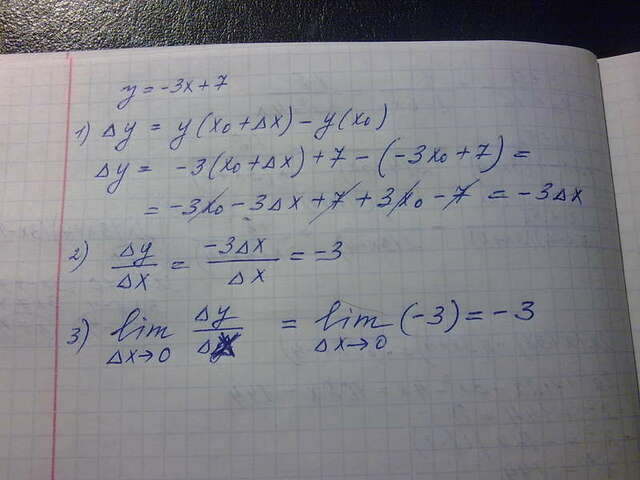 y = -3x + 7
1) Δy = y(x₀ + Δx) - y(x₀)
Δy = -3(x₀ + Δx) + 7 - (-3x₀ + 7) =
= -3x₀ - 3Δx + 7 + 3x₀ - 7 = -3Δx
2) Δy/Δx = -3Δx/Δx = -3
3) lim Δx→0 Δy/Δx = lim Δx→0 (-3) = -3